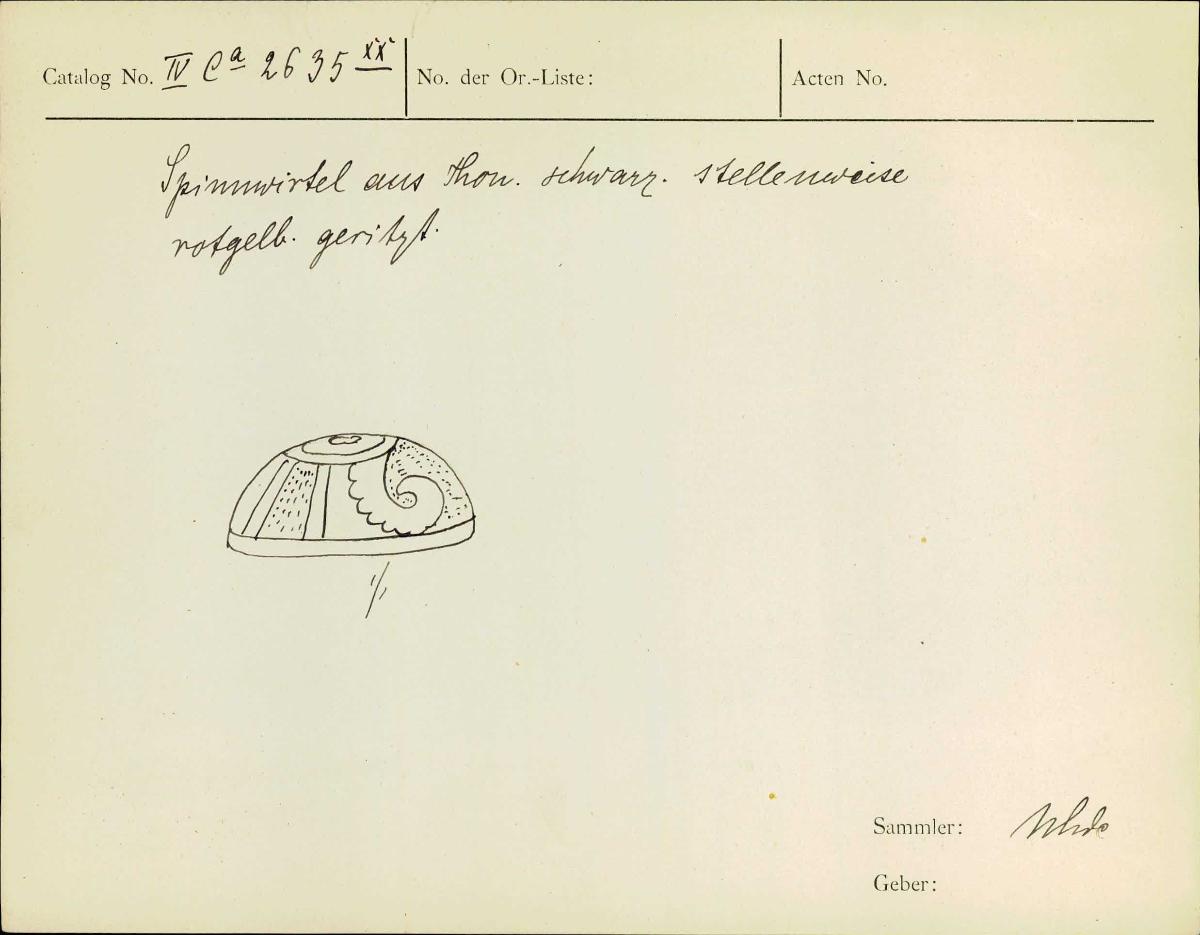 Catalog No. IV Ca 2635 xx
No. der Or.-Liste:
Acten No.
Spinnwirtel aus Thon. schwarz. stellenweise
rotgelb. geritzt.
1/1
Sammler: Uhde
Geber: